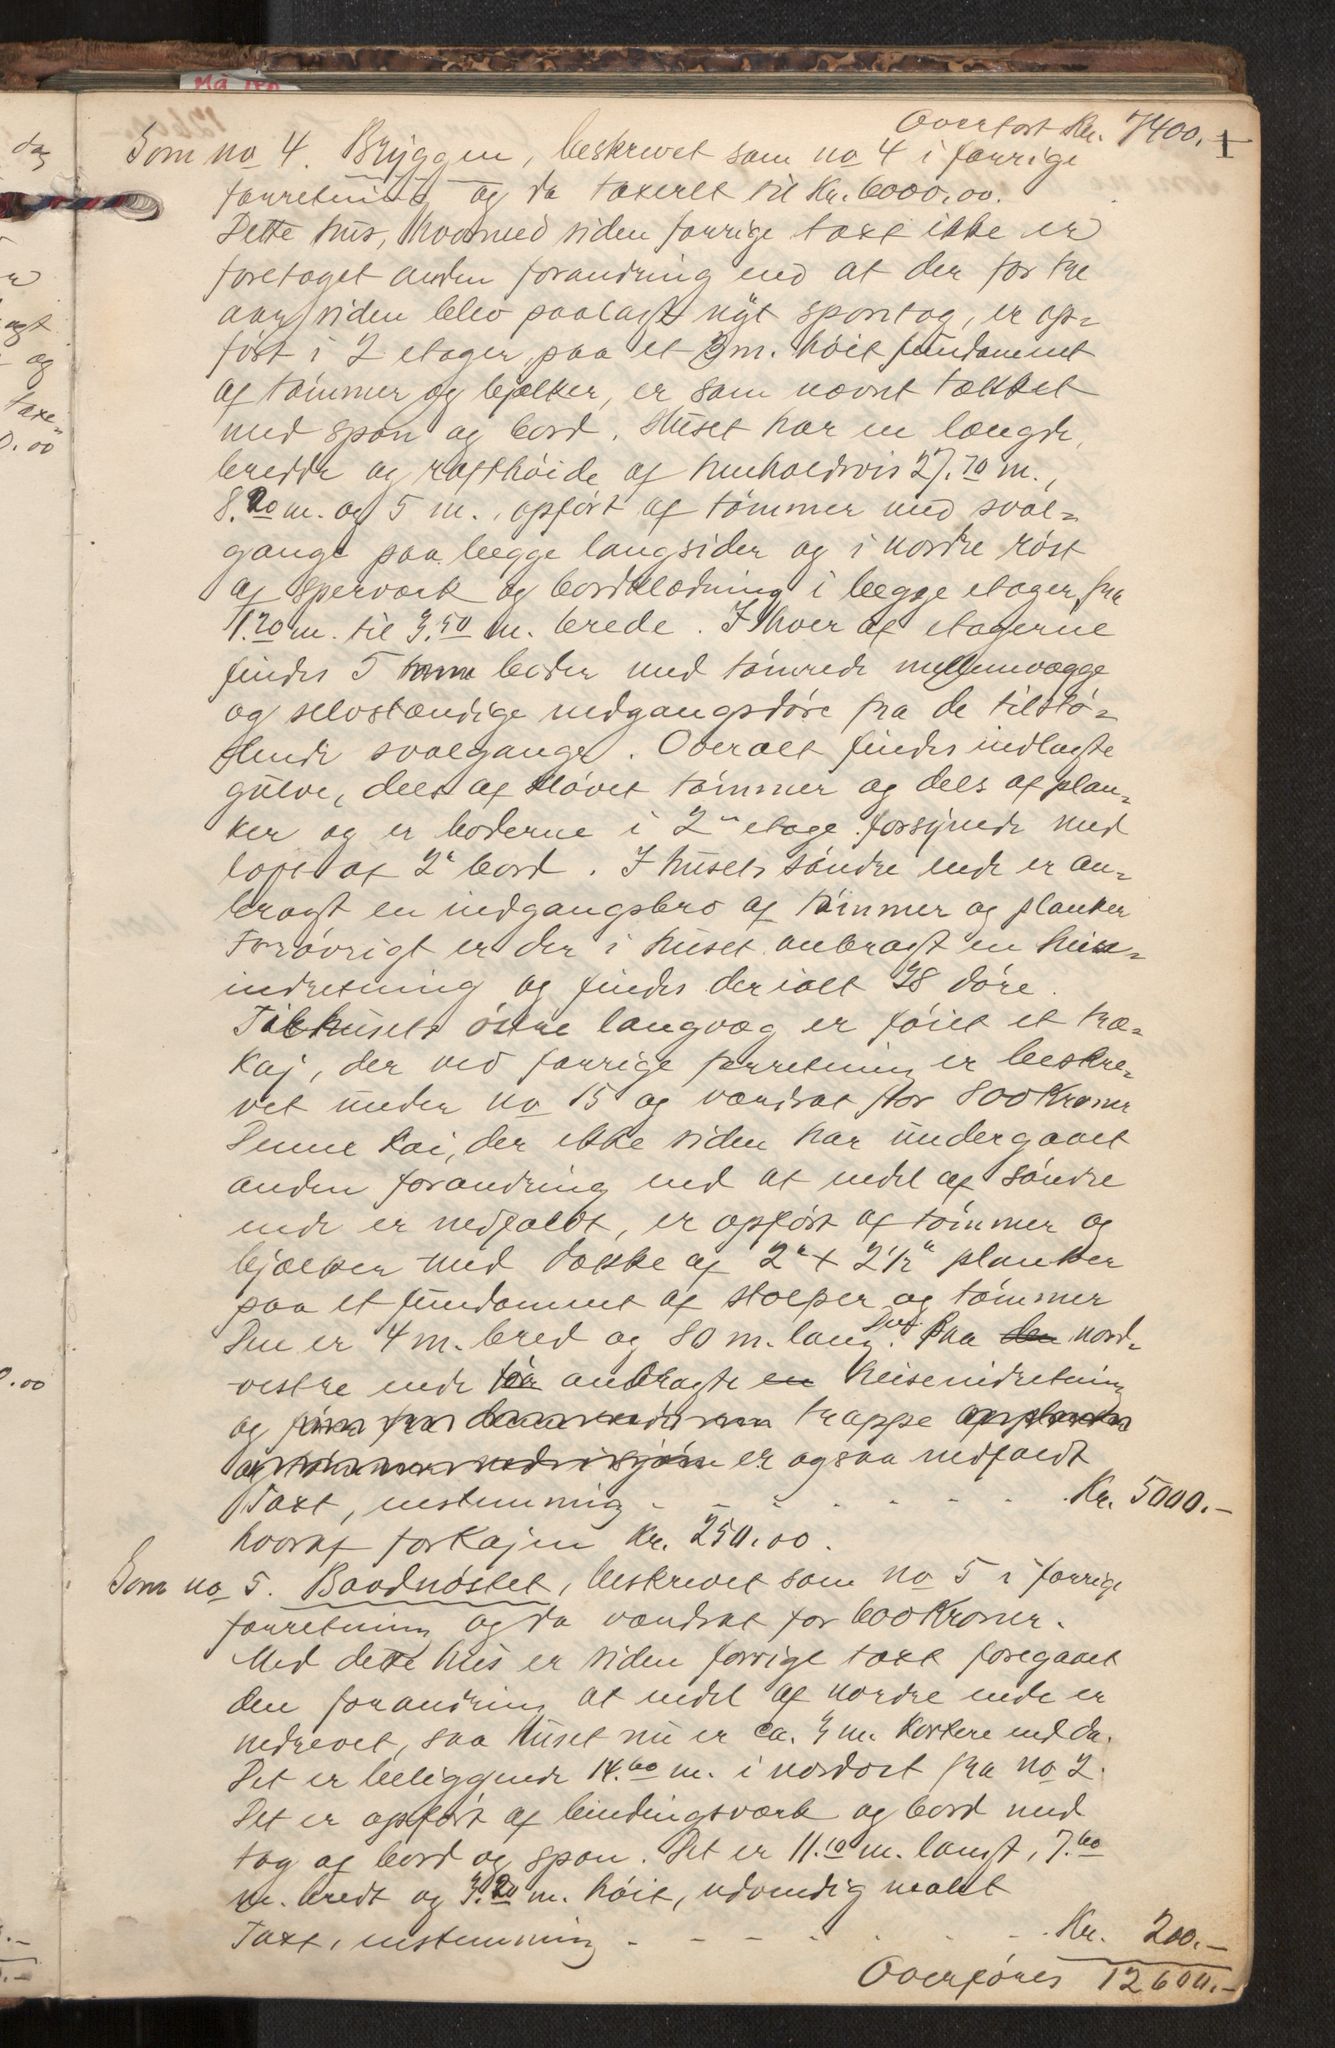 Overført Kr. 7400.-
1
Som no 4. Bryggen, beskrevet som no 4 i forrige
forretning og da taxeret til Kr. 6000.00.
Dette hus, hvormed siden forrige taxt ikke er
foretaget anden forandring end at der for tre
aar siden blev paalagt nyt spontag, er op-
ført i 2 etager paa et 3 m. høit fundament
af tømmer og bjælker, er som nævnt tækket
med spon og bord. Huset har en længde,
bredde og rafthøide af henholdsvis 27.70 m.,
8.20 m. og 5 m., opført af tømmer med sval-
gange paa begge langsider og i nordre røst
af sperværk og bordklædning i begge etager, fra
1.20 m. til 3.50 m. brede. I hver af etagerne
findes 5 boder med tømrede mellemvægge
og selvstændige indgangsdøre fra de tilstø-
dende svalgange. Overalt findes indlagte
gulve, dels af kløvet tømmer og dels af plan-
ker og er boderne i 2den etage forsynede med
loft af 2" bord. I husets søndre ende er an-
bragt en indgangsbro af tømmer og planker
Forøvrigt er der i huset anbragt en heise-
indretning og findes der ialt 38 døre.
Til husets østre langvæg er føiet et træ-
kaj, der ved forrige forretning er beskre-
vet under no 15 og værdsat for 800 Kroner
Denne kai, der ikke siden har undergaaet
anden forandring end at endel af søndre
ende er nedfaldt, er opført af tømmer og
bjælker med dække af 2" + 2 1/2" planker
paa et fundament af stolper og tømmer
Den er 4 m. bred og 80 m. lang. Den paa den nord-
vestre ende før anbragte en heiseindretning
og trappe af planker
og tømmer ned i sjøen er ogsaa nedfaldt
Taxt, enstemmig - - - - - - - Kr. 5000.-
hvoraf for Kajen Kr. 250.00.
Som no 5. Baadnøstet, beskrevet som no 5 i forrige
forretning og da værdsat for 600 Kroner.
Med dette hus er siden forrige taxt foregaaet
den forandring at endel af nordre ende er
nedrevet, saa huset nu er ca. 9 m. kortere end da.
Det er beliggende 14.60 m. i nordost fra no 2.
Det er opført af bindingsværk og bord med
tag af bord og spon. Det er 11.10 m. langt, 7.60
m. bredt og 3.20 m. høit, udvendig malet
Taxt, enstemmig - - - - - - - Kr. 200.-
Overføres 12600.-